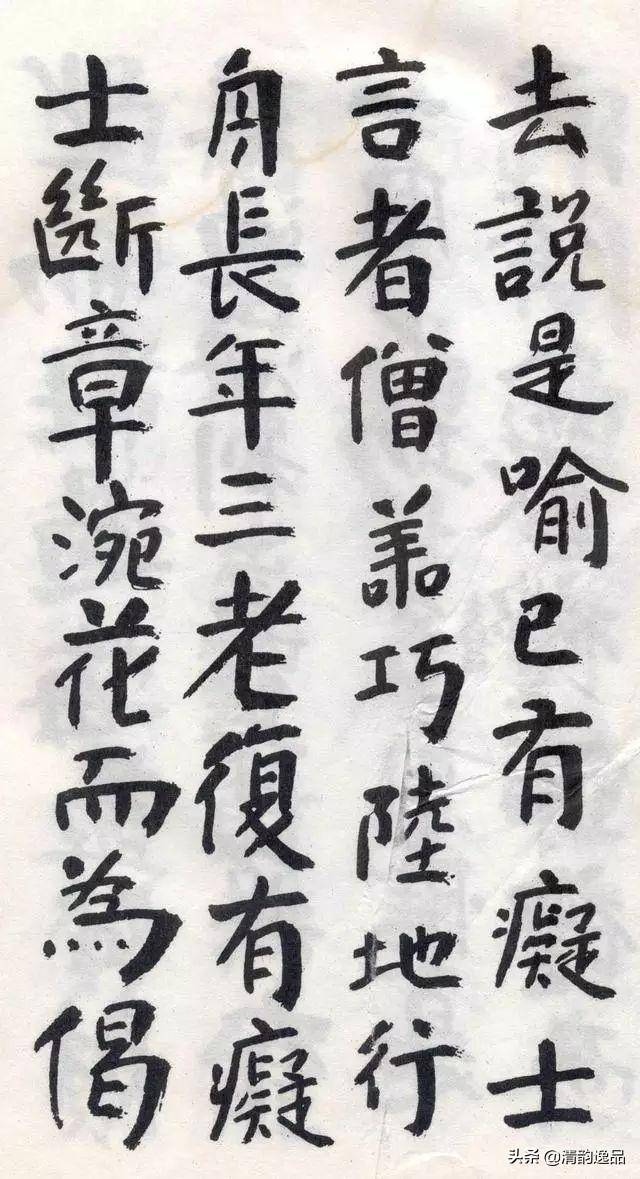 去說是喻已有癡士
言者僧善巧陸地行
舟長年三老復有癡
士斷章涴花而為偈
头条 @清韵逸品